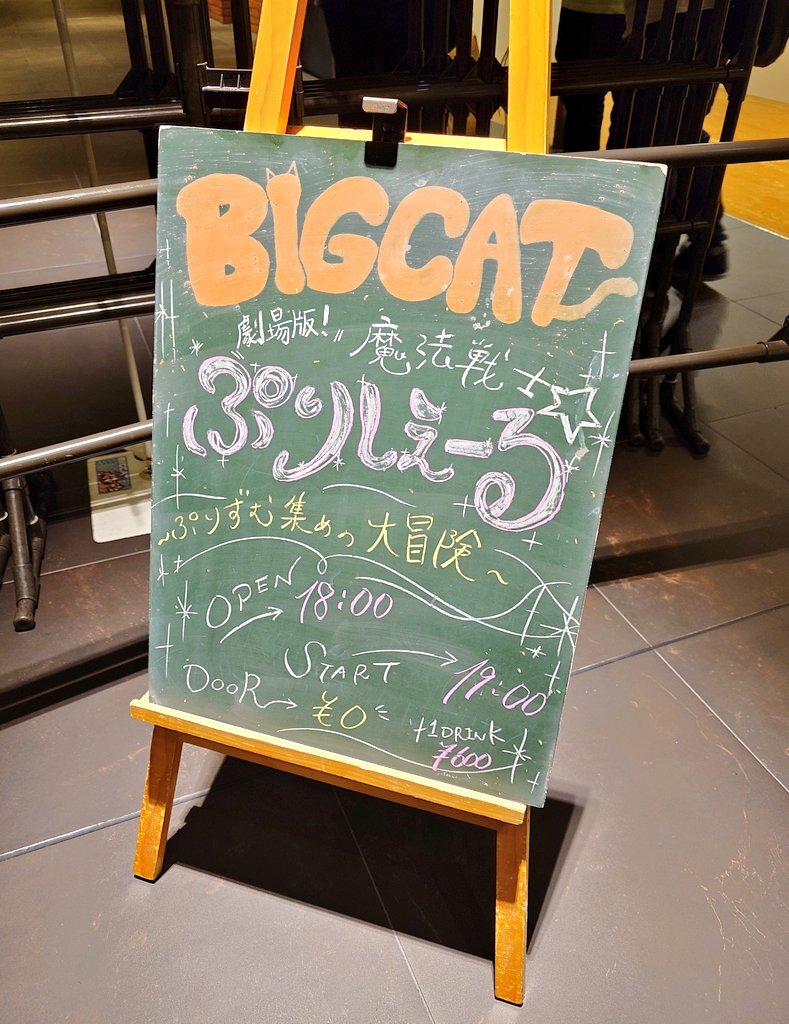 BIGCAT
"劇場版!" 魔法戦士☆
ぷりしぇーる
～ぷりずむ集めっ大冒険～
OPEN → 18:00
START → 19:00
DOOR → ¥0
+1DRINK
¥600